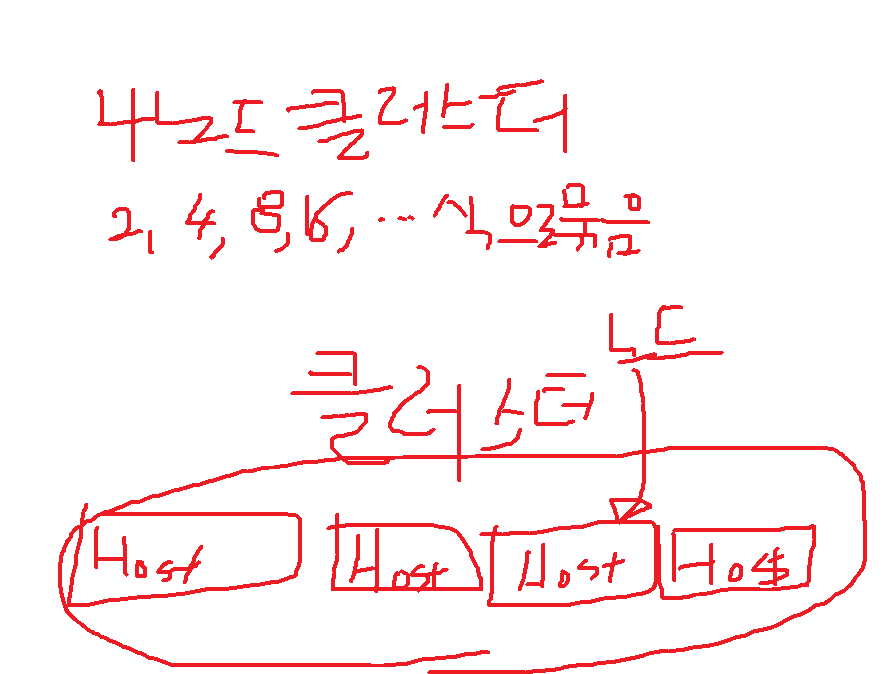 4노드 클러스터
2, 4, 8, 16, … 식으로 묶음
노드
클러스터
Host Host Host Host